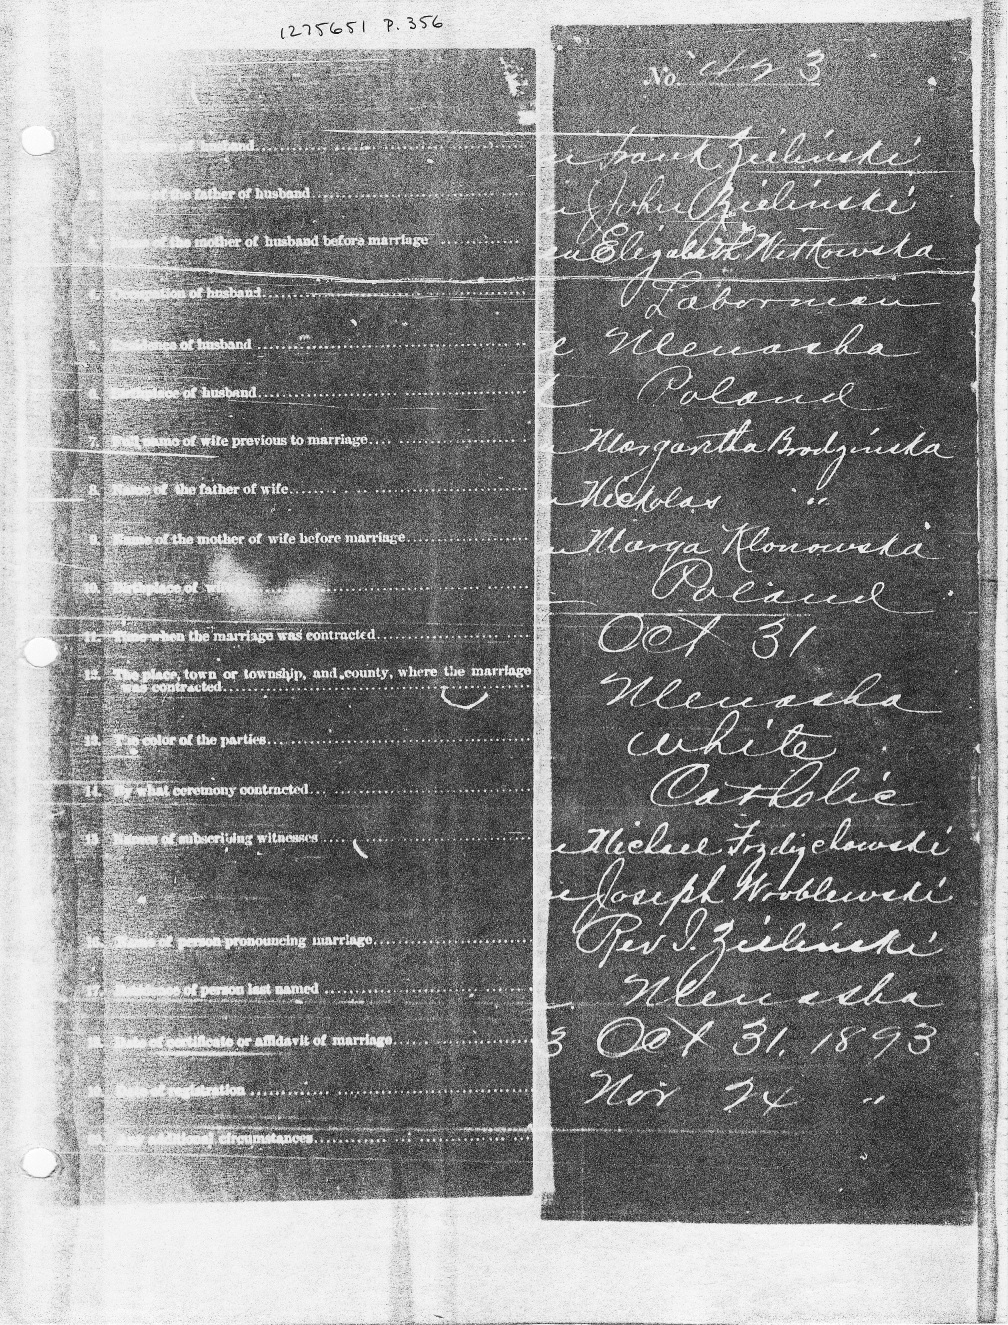 1275651 P. 356
No. 423
1. Full name of husband Frank Zieliński
2. Name of the father of husband John Zieliński
3. Name of the mother of husband before marriage Elizabeth Witkowska
4. Occupation of husband Laborman
5. Residence of husband Menasha
6. Birthplace of husband Poland
7. Full name of wife previous to marriage Margaretha Brodzińska
8. Name of the father of wife Nickolas "
9. Name of the mother of wife before marriage Marya Klonowska
10. Birthplace of wife Poland
11. Time when the marriage was contracted Oct 31
12. The place, town or township, and county, where the marriage
was contracted Menasha
13. The color of the parties White
14. By what ceremony contracted Catholic
15. Names of subscribing witnesses Michael
Joseph Wroblewski
16. Name of person pronouncing marriage Rev I. Zieliński
17. Residence of person last named Menasha
18. Date of certificate or affidavit of marriage Oct 31. 1893
19. Date of registration Nov 24 "
20. Any additional circumstances